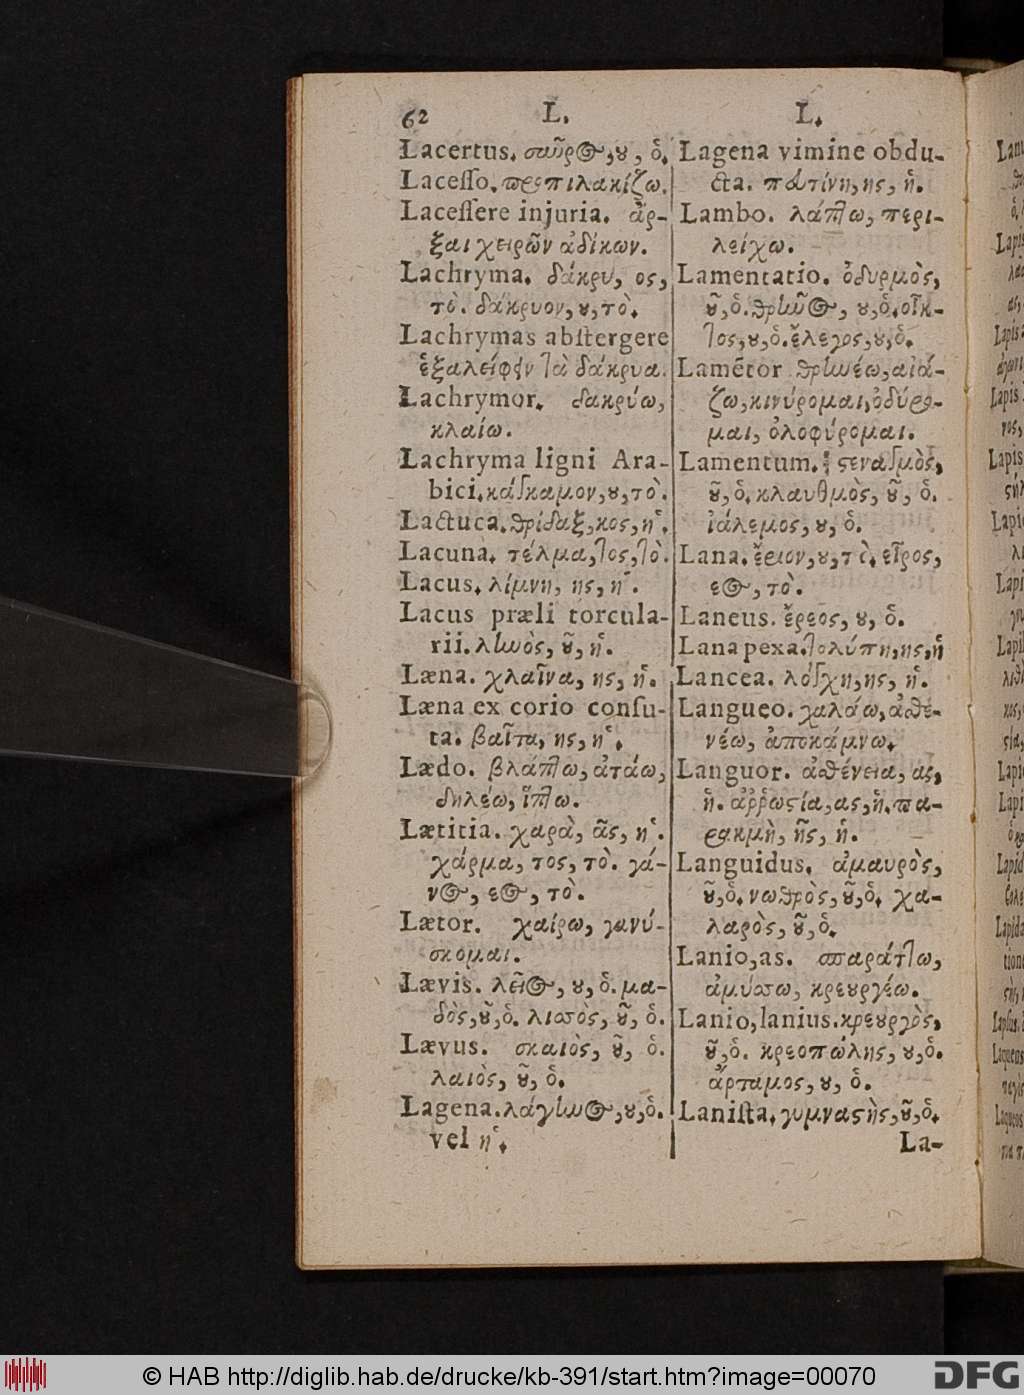 62 L. L.
Lacertus. σαῦρος, ου, ὁ.
Lacesso. προπιλακίζω.
Lacessere injuria. ἄρ-
ξαι χειρῶν ἀδίκων.
Lachryma. δάκρυ, ος,
τὸ. δάκρυον, ου, τὸ.
Lachrymas abstergere
ἐξαλείφειν τὰ δάκρυα.
Lachrymor. δακρύω,
κλαίω.
Lachryma ligni Ara-
bici. κάγκαμον, ου, τὸ.
Lactuca. θρίδαξ, κος, ἡ.
Lacuna. τέλμα, τος, τὸ.
Lacus. λίμνη, ης, ἡ.
Lacus præli torcula-
rii. ληνὸς, οῦ, ἡ.
Læna. χλαῖνα, ης, ἡ.
Læna ex corio consu-
ta. βαῖτα, ης, ἡ.
Lædo. βλάπτω, ἀτάω,
δηλέω, ἵπτω.
Lætitia. χαρὰ, ᾶς, ἡ.
χάρμα, τος, τὸ. γά-
νος, εος, τὸ.
Lætor. χαίρω, γανύ-
σκομαι.
Lævis. λεῖος, ου, ὁ. μα-
δὸς, οῦ, ὁ. λισσὸς, οῦ, ὁ.
Lævus. σκαιὸς, οῦ, ὁ.
λαιὸς, οῦ, ὁ.
Lagena. λάγηνος, ου, ὁ.
vel ἡ.
Lagena vimine obdu-
cta. πυτίνη, ης, ἡ.
Lambo. λάπτω, περι-
λείχω.
Lamentatio. ὀδυρμὸς,
οῦ, ὁ. θρῆνος, ου, ὁ. οἶκ-
τος, ου, ὁ. ἔλεγος, ου, ὁ.
Lamẽtor θρηνέω, αἰά-
ζω, κινύρομαι, ὀδύρο-
μαι, ὀλοφύρομαι.
Lamentum. στεναγμὸς,
οῦ, ὁ. κλαυθμὸς, οῦ, ὁ.
ἰάλεμος, ου, ὁ.
Lana. ἔριον, ου, τὸ. εἶρος,
εος, τὸ.
Laneus. ἔρεος, ου, ὁ.
Lana pexa. τολύπη, ης, ἡ
Lancea. λόγχη, ης, ἡ.
Langueo. χαλάω, ἀσθε-
νέω, ἀποκάμνω.
Languor. ἀσθένεια, ας,
ἡ. ἀῤῥωστία, ας, ἡ. πα-
ρακμὴ, ῆς, ἡ.
Languidus. ἀμαυρὸς,
οῦ, ὁ. νωθρὸς, οῦ, ὁ. χα-
λαρὸς, οῦ, ὁ.
Lanio, as. σπαράττω,
ἀμύσσω, κρεουργέω.
Lanio, lanius. κρεουργὸς,
οῦ, ὁ. κρεοπώλης, ου, ὁ.
ἄρταμος, ου, ὁ.
Lanista. γυμναστὴς, οῦ, ὁ.
La-
© HAB http://diglib.hab.de/drucke/kb-391/start.htm?image=00070
DFG